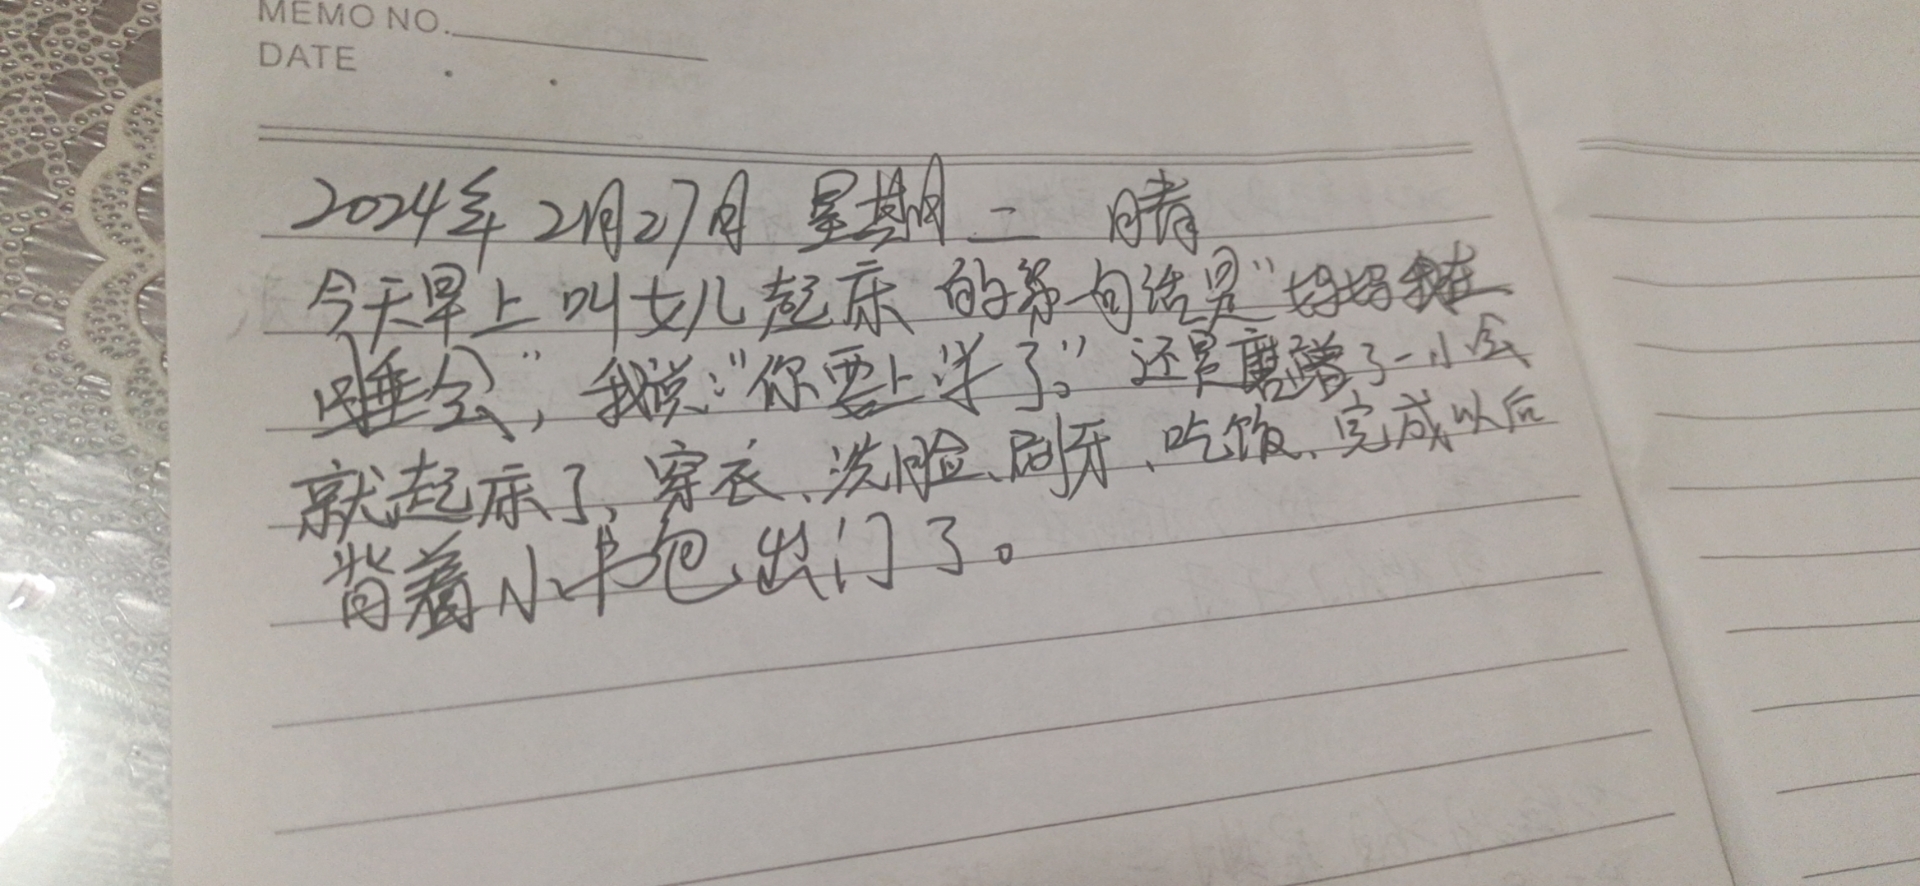 MEMO NO.
DATE
2024年2月27日 星期二 晴
今天早上叫女儿起床的第一句话是"妈妈我在
睡会",我说:"你要上学了。"还是磨蹭了一小会
就起床了、穿衣、洗脸、刷牙、吃饭、完成以后
背着小书包出门了。